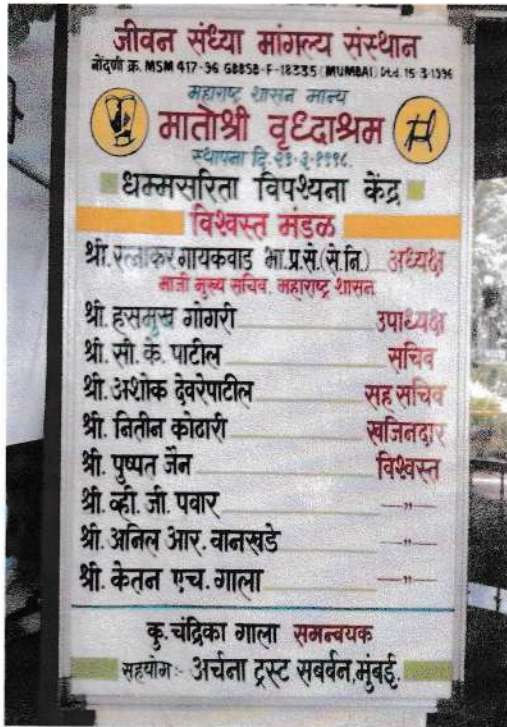 जीवन संध्या मांगल्य संस्थान
नोंदणी क्र. MSM 417-96 GBBSD-F-18335 (MUMBAI) Dtd. 15-3-1996
महाराष्ट्र शासन मान्य
मातोश्री वृध्दाश्रम
स्थापना दि. २१-३-१९९८.
धम्मसरिता विपश्यना केंद्र
विश्वस्त मंडळ
श्री. रत्नाकर गायकवाड भा.प्र.से.(से.नि.) अध्यक्ष
माजी मुख्य सचिव, महाराष्ट्र शासन
श्री. हसमुख गोगरी उपाध्यक्ष
श्री. सी. के. पाटील सचिव
श्री. अशोक देवरेपाटील सह सचिव
श्री. नितीन कोठारी खजिनदार
श्री. पुष्पत जैन विश्वस्त
श्री. व्ही. जी. पवार —"—
श्री. अनिल आर. वानखडे —"—
श्री. केतन एच. गाला —"—
कु. चंद्रिका गाला समन्वयक
सहयोग:- अर्चना ट्रस्ट सबर्बन, मुंबई.